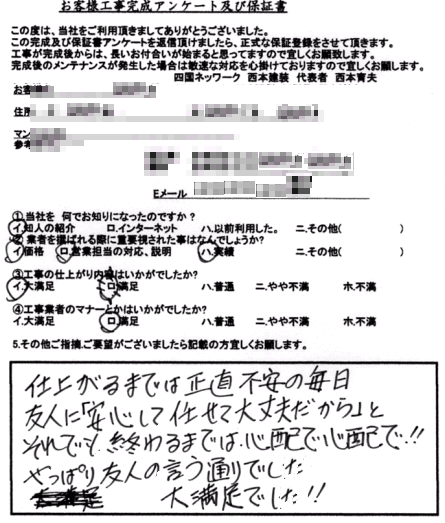 お客様工事完成アンケート及び保証書
この度は、当社をご利用頂きましてありがとうございました。
この完成及び保証書アンケートを返信頂けましたら、正式な保証登録をさせて頂きます。
工事が完成後からは、長いお付合いが始まると思ってますので宜しくお願い致します。
完成後のメンテナンスが発生した場合は敏速な対応を心掛けておりますので宜しくお願します。
四国ネッワーク 西本建装 代表者 西本育夫
お客
住所
マン
参考
Eメール
①当社を 何でお知りになったのですか?
イ.知人の紹介 ロ.インターネット ハ.以前利用した。 ニ.その他( )
②業者を選ばれる際に重要視された事はなんでしょうか?
イ.価格 ロ.営業担当の対応、説明 ハ.実績 ニ.その他( )
③工事の仕上がり内容はいかがでしたか?
イ.大満足 ロ.満足 ハ.普通 ニ.やや不満 ホ.不満
④工事業者のマナーとかはいかがでしたか?
イ.大満足 ロ.満足 ハ.普通 ニ.やや不満 ホ.不満
5.その他ご指摘、ご要望がございましたら記載の方宜しくお願します。
仕上がるまでは正直不安の毎日
友人に「安心して任せて大丈夫だから」と
それでも、終わるまでは、心配で心配で!!
やっぱり友人の言う通りでした
大満足でした!!